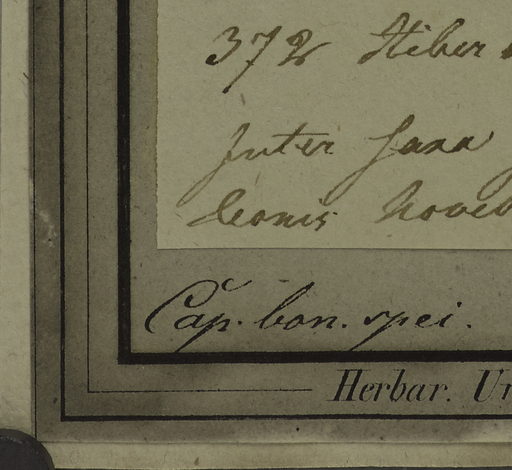 372 Stiber
Inter saxa
leonis Noveb
Cap. bon. spei.
Herbar. Un